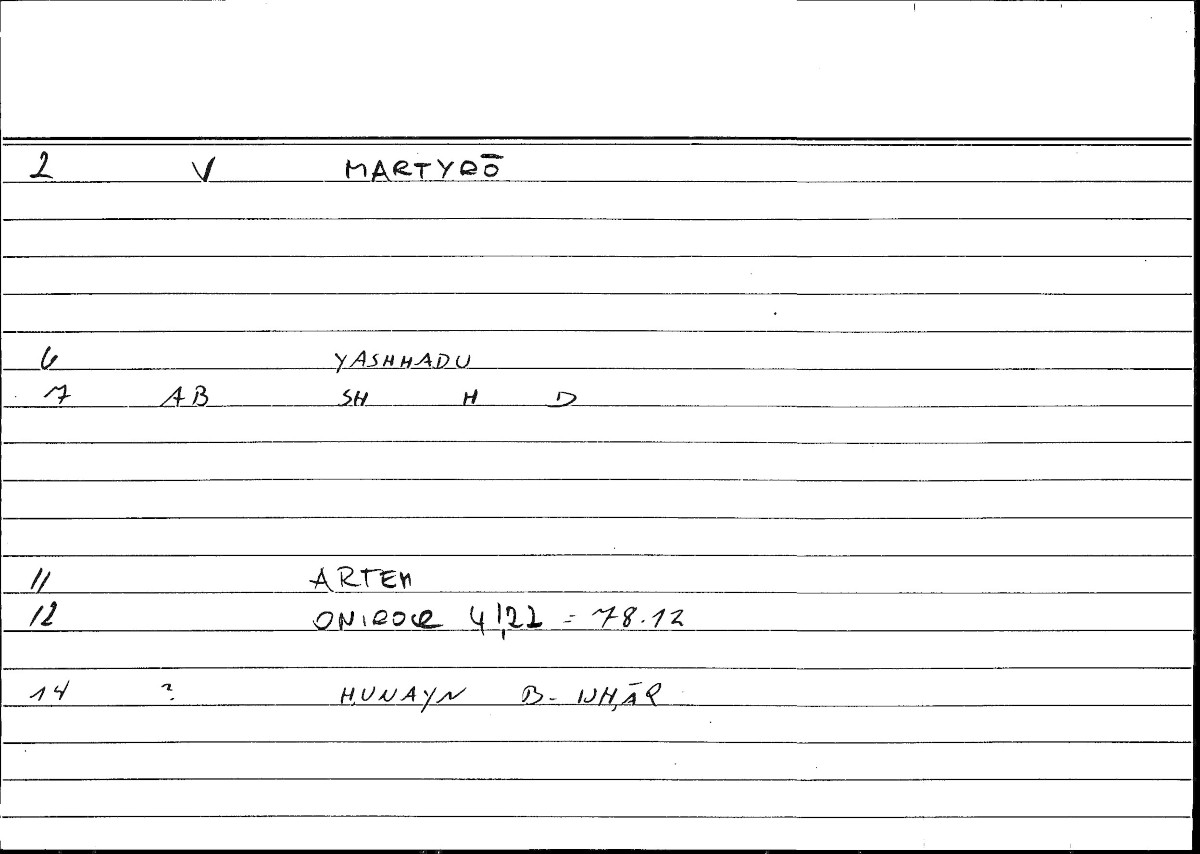 2 V MARTYRŌ
6 YASHHADU
7 AB SH H D
11 ARTEM
12 ONIROCR 4,22 = 78.12
14 ? ḤUNAYN B-